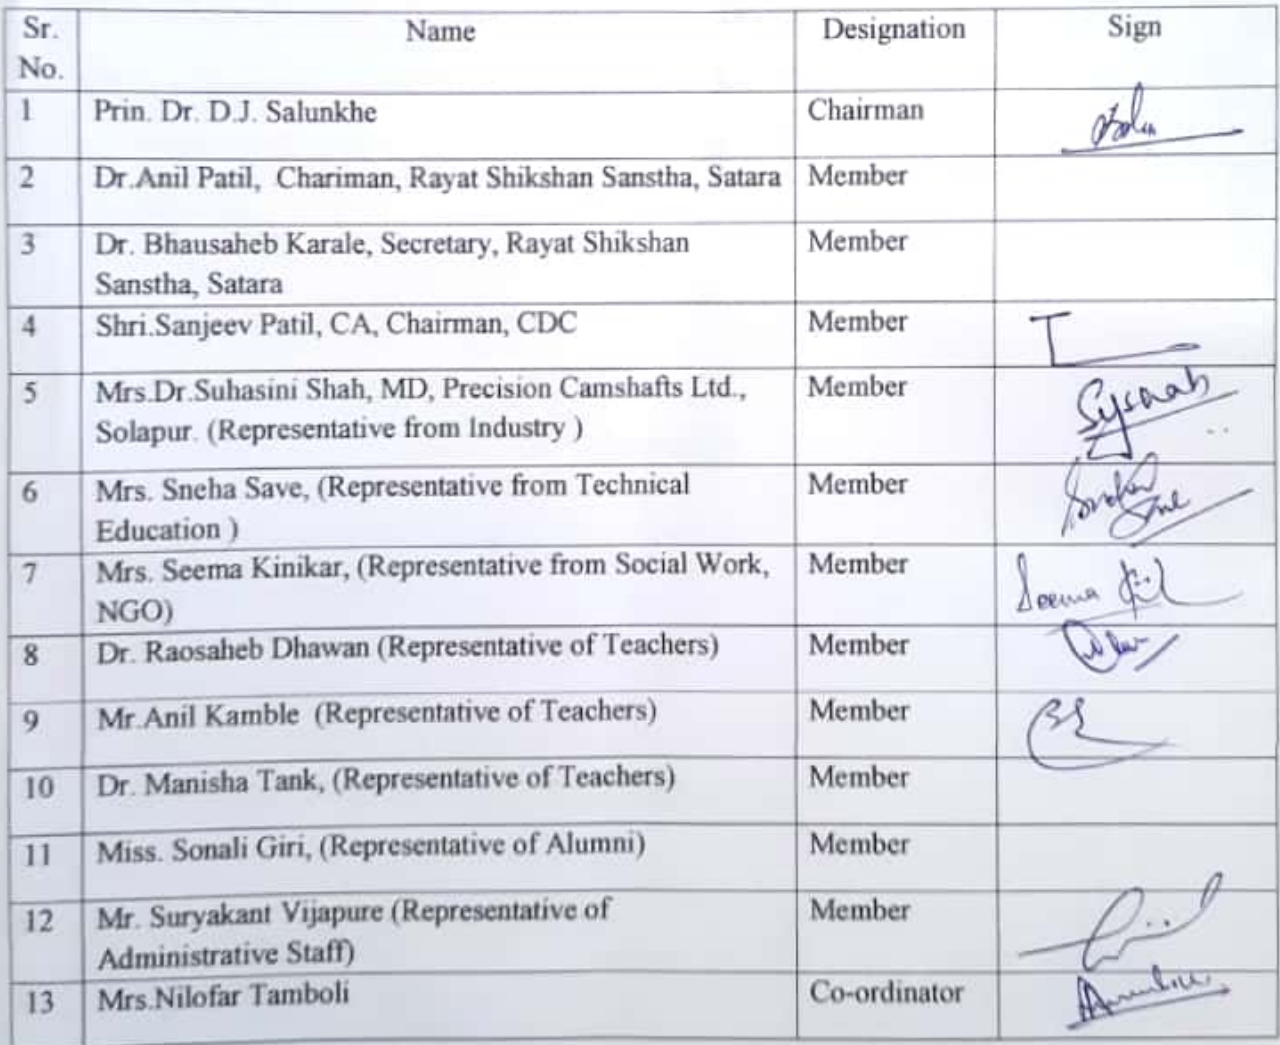 Sr. No. Name Designation Sign
1 Prin. Dr. D.J. Salunkhe Chairman
2 Dr.Anil Patil, Chariman, Rayat Shikshan Sanstha, Satara Member
3 Dr. Bhausaheb Karale, Secretary, Rayat Shikshan Member
Sanstha, Satara
4 Shri.Sanjeev Patil, CA, Chairman, CDC Member
5 Mrs.Dr.Suhasini Shah, MD, Precision Camshafts Ltd., Member
Solapur. (Representative from Industry )
6 Mrs. Sneha Save, (Representative from Technical Member
Education )
7 Mrs. Seema Kinikar, (Representative from Social Work, Member Seema
NGO)
8 Dr. Raosaheb Dhawan (Representative of Teachers) Member
9 Mr.Anil Kamble (Representative of Teachers) Member
10 Dr. Manisha Tank, (Representative of Teachers) Member
11 Miss. Sonali Giri, (Representative of Alumni) Member
12 Mr. Suryakant Vijapure (Representative of Member
Administrative Staff)
13 Mrs.Nilofar Tamboli Co-ordinator